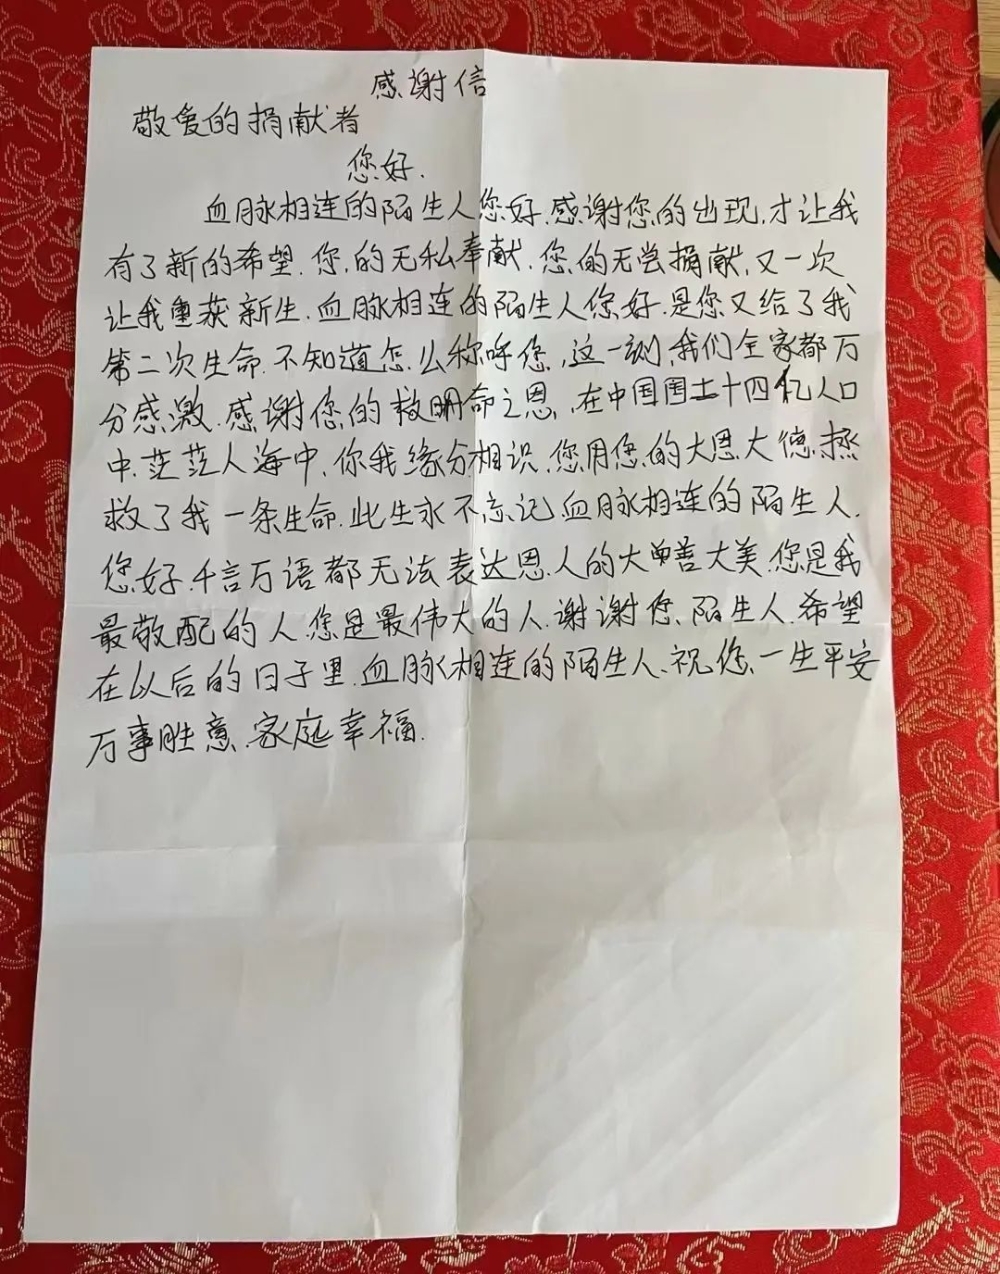 感谢信
敬爱的捐献者
您好.
血脉相连的陌生人您好.感谢您的出现.才让我
有了新的希望.您的无私奉献.您的无尝捐献,又一次
让我重获新生.血脉相连的陌生人您好.是您又给了我
第二次生命.不知道怎么称呼您,这一刻,我们全家都万
分感激.感谢您的救命之恩,在中国国土十四亿人口
中.茫茫人海中,你我缘分相识.您用您的大恩大德.拯
救了我一条生命.此生永不忘记血脉相连的陌生人.
您好.千言万语都无法表达恩人的大善大美.您是我
最敬配的人.您是最伟大的人.谢谢您.陌生人.希望
在以后的日子里.血脉相连的陌生人.祝您.一生平安
万事胜意.家庭幸福.